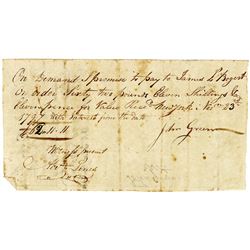 On Demand I promise to pay to James
or order Sixty two pounds Eleven Shillings &
Elevenpence for Value Recd. New York Novr 23d
with Interest from the date
£62-11-11
John Green
Witness Present